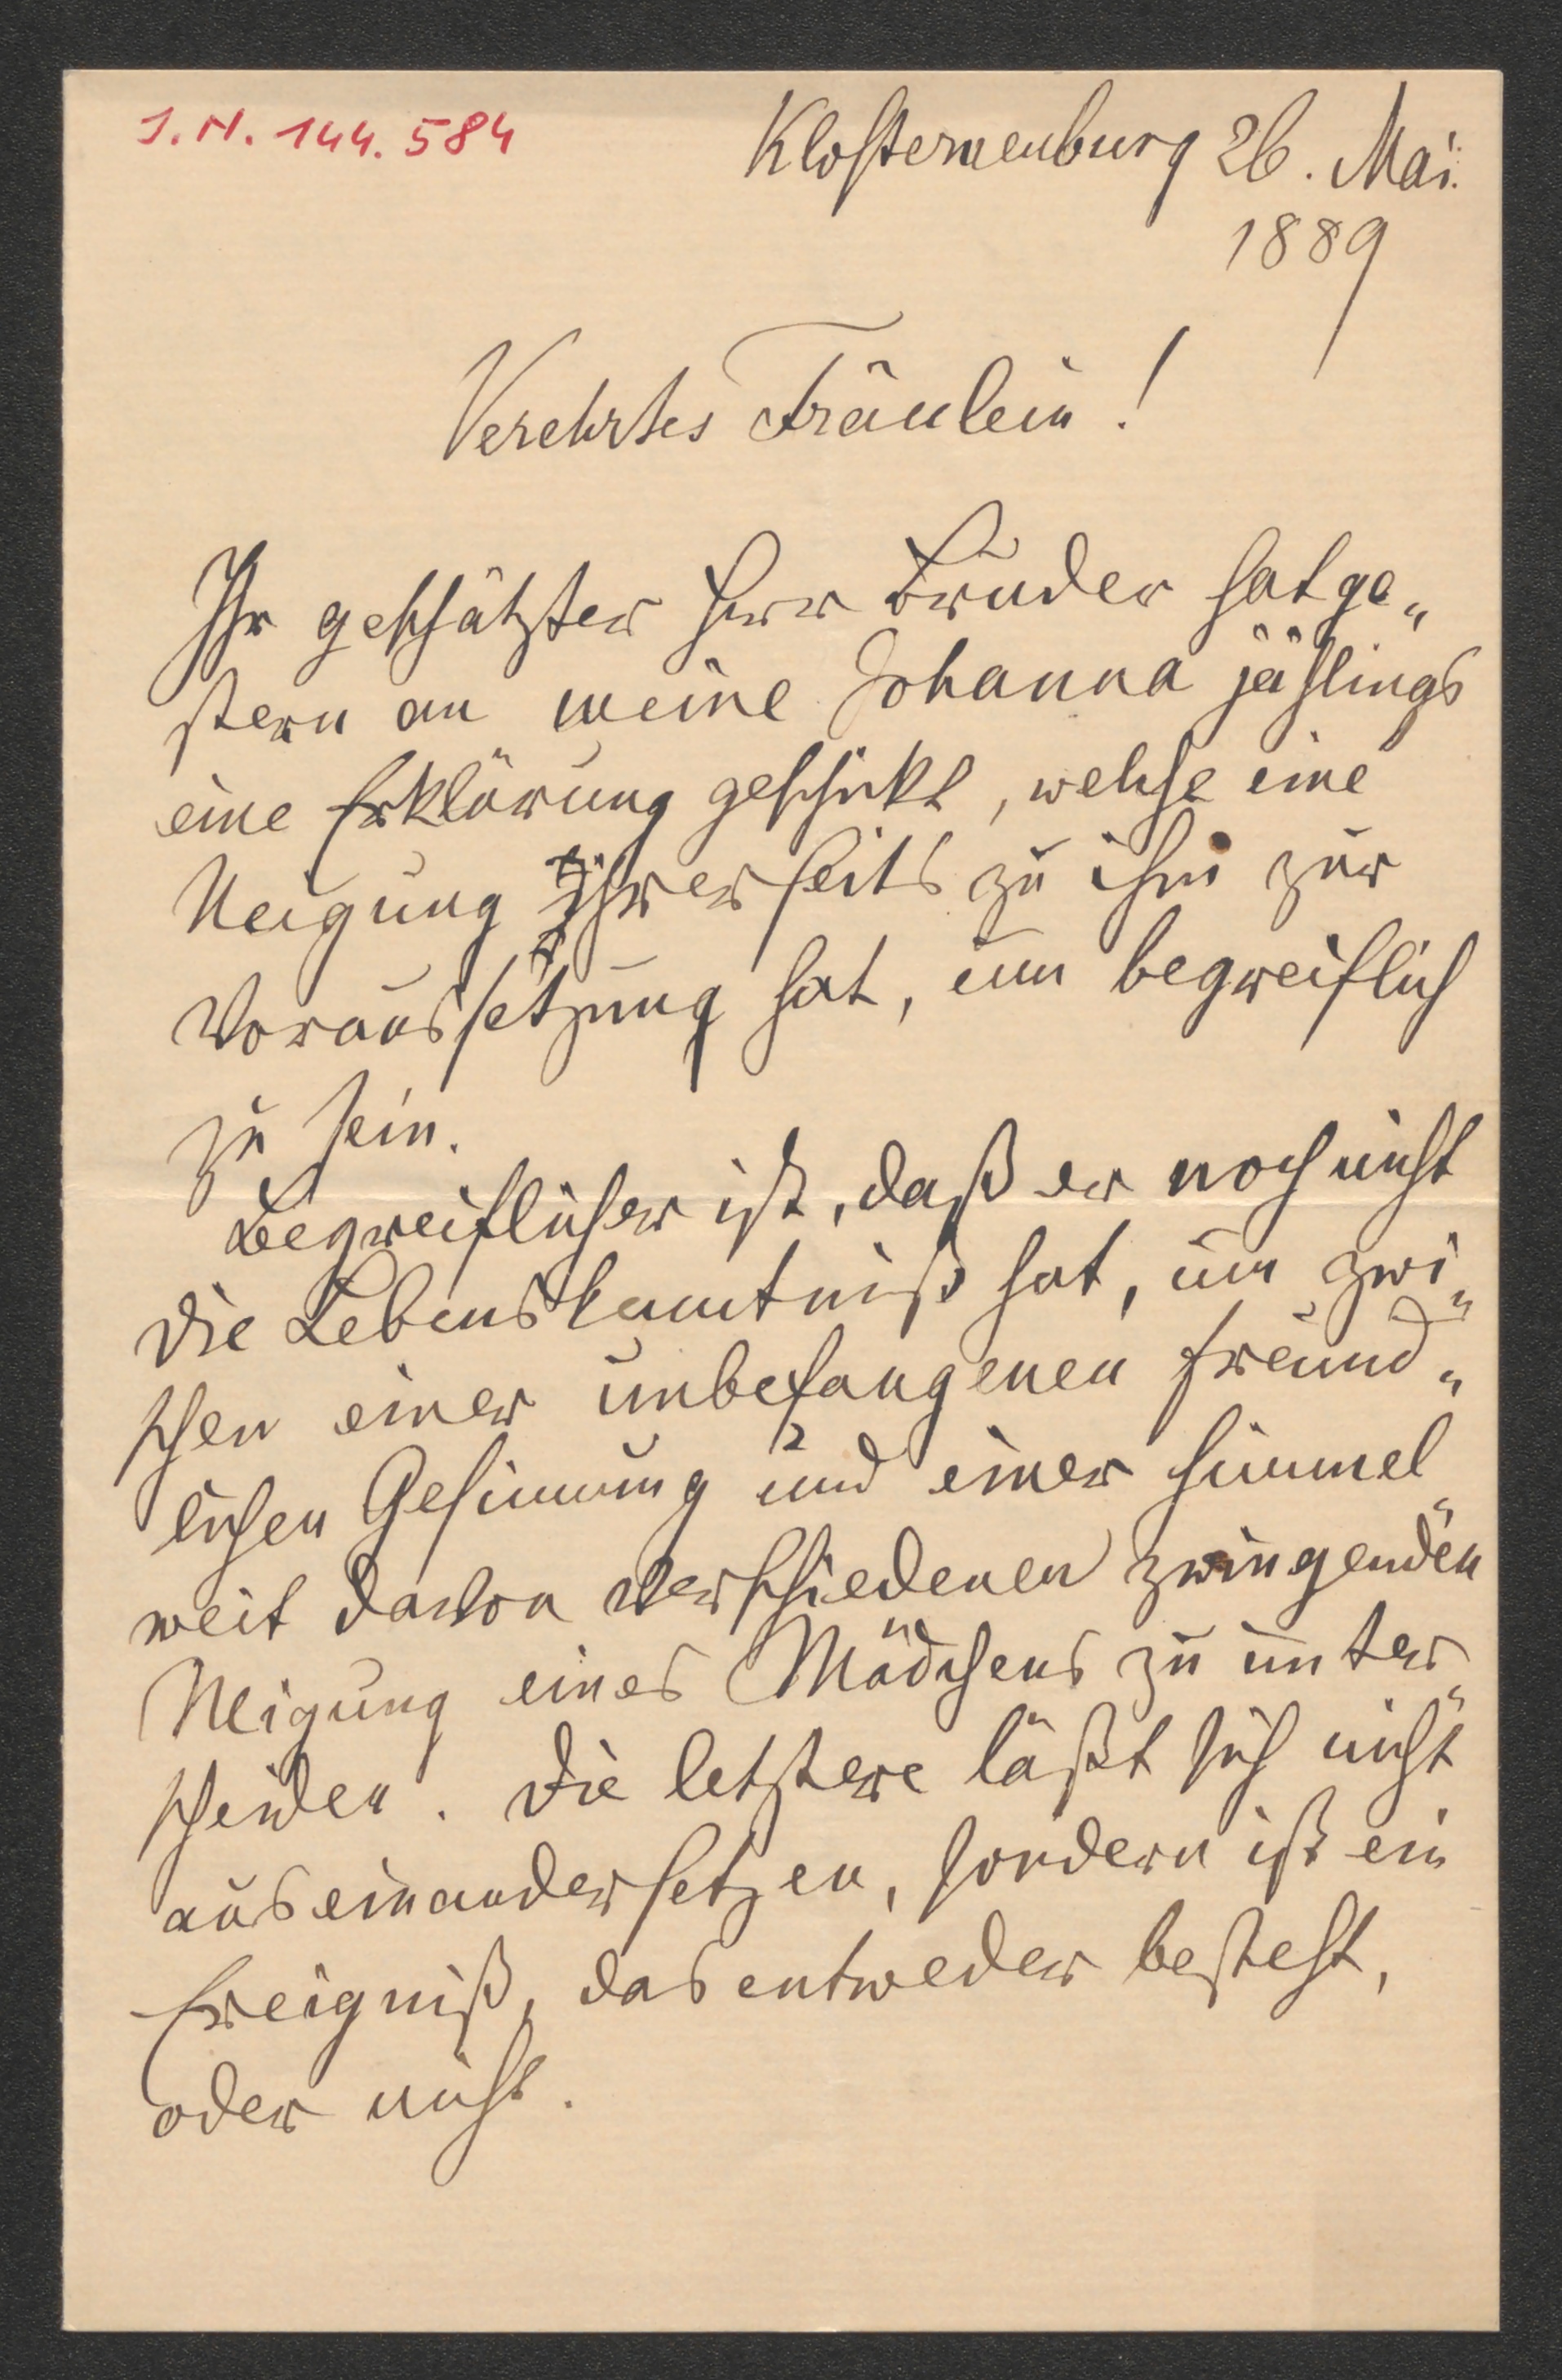 I. N. 144.584
Klosterneuburg 26. Mai.
1889
Verehrtes Fräulein!
Ihr geschätzter Herr Bruder hat ge„
stern an meine Johanna jählings
eine Erklärung geschickt, welche eine
Neigung Ihrerseits zu ihm zur
Voraussetzung hat, um begreiflich
zu sein.
Begreiflicher ist, daß er noch nicht
die Lebenskenntniß hat, um zwi„
schen einer unbefangenen freund„
lichen Gesinnung und einer himmel„
weit davon verschiedenen zwingenden
Neigung eines Mädchens zu unter„
scheiden. Die letztere läßt sich nicht
auseinandersetzen, sondern ist ein
Ereigniß, das entweder besteht,
oder nicht.